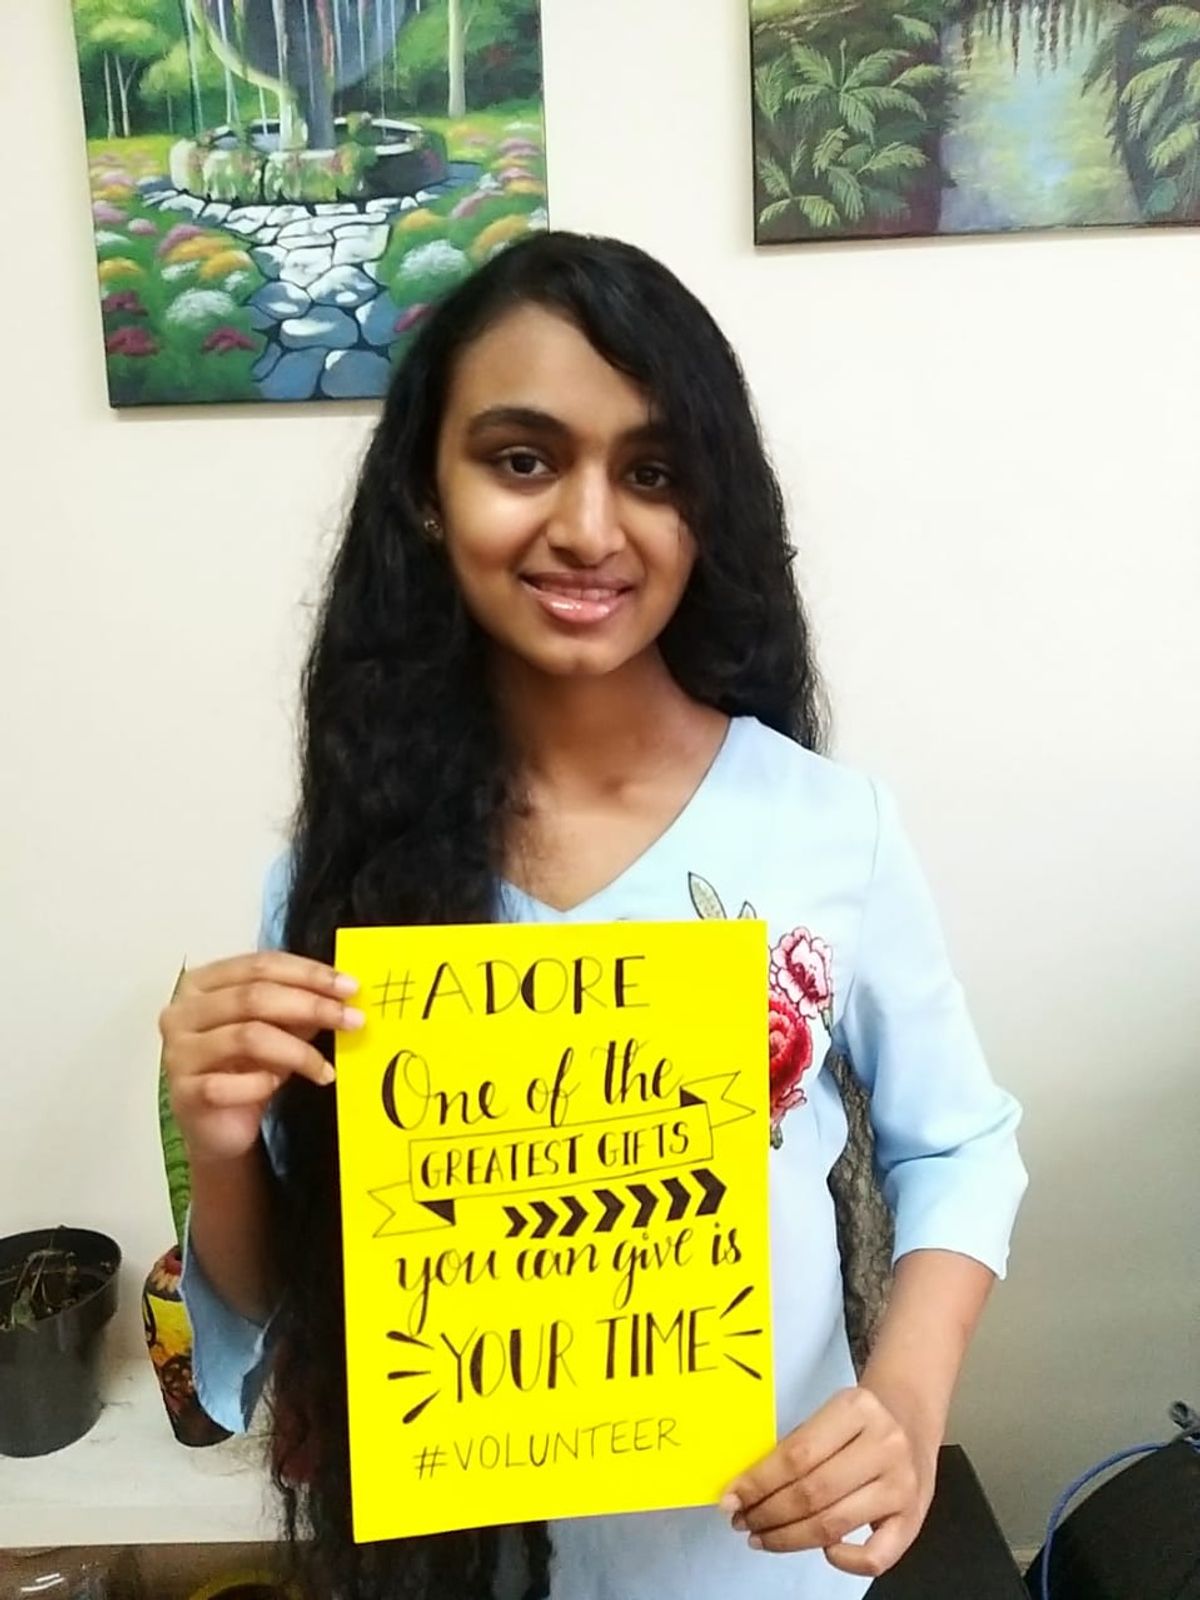 #ADORE
One of the
GREATEST GIFTS
you can give is
YOUR TIME
#VOLUNTEER